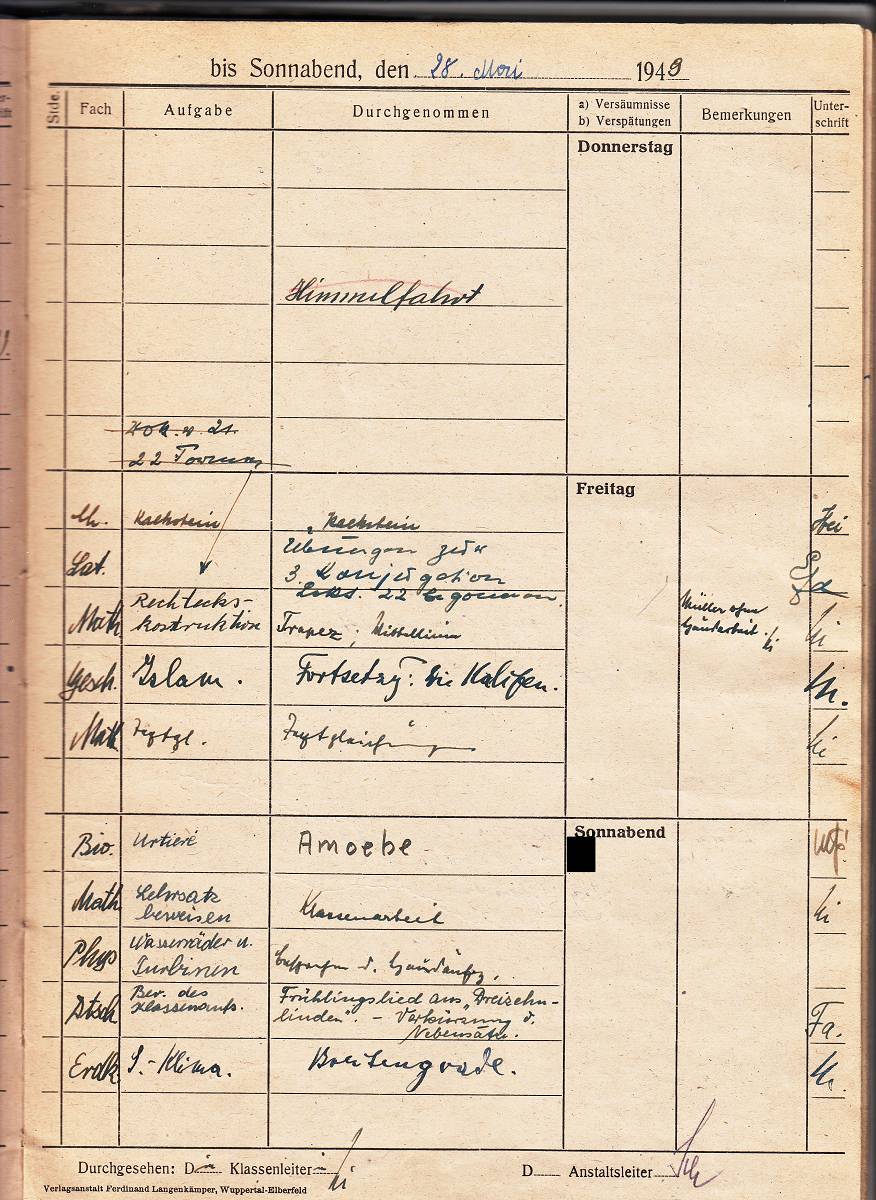 bis Sonnabend, den 28. Mai 1949
Side.
Fach
Aufgabe
Durchgenommen
a) Versäumnisse
b) Verspätungen
Bemerkungen
Unter-
schrift
Donnerstag
Himmelfahrt
22
Freitag
Kalkstein
Kalkstein
Lat.
Übungen zur
3. Konjugation
22 begonnen.
Math
Rechtecks-
kostruktion
Trapez; Mittellinie
Müller ohne
Hausarbeit.
Gesch.
Islam.
Fortsetzg: Die Kalifen.
Math
Sonnabend
Bio.
Urtiere
Amoebe
Math
Lehrsatz
beweisen
Klassenarbeit
Phys
Wasserräder u.
Turbinen
Dtsch
Ber. des
Klassenaufs.
Frühlingslied aus "Dreizehn-
linden". - Verkürzung d.
Nebensätze.
Fa.
Erdk
S.-Klima.
Breitengrade.
Durchgesehen: D Klassenleiter
D Anstaltsleiter
Verlagsanstalt Ferdinand Langenkämper, Wuppertal-Elberfeld